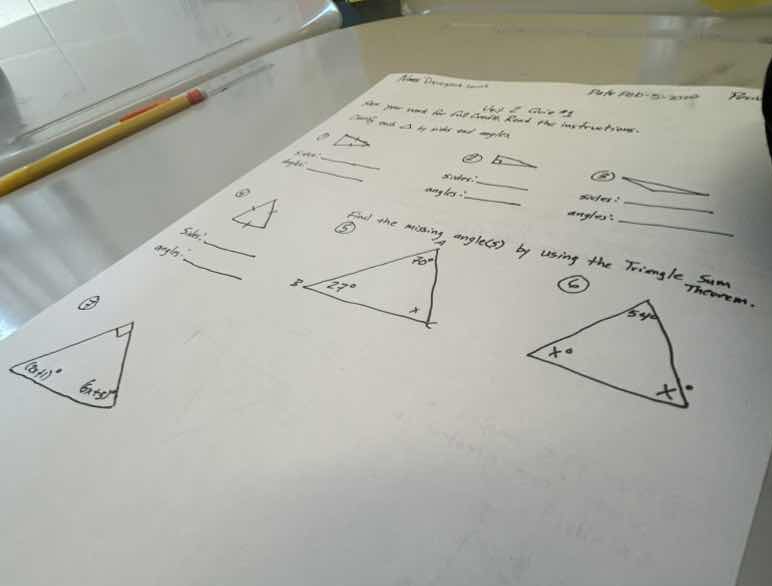 Name
Date Feb
Unit 2 Quiz #1
Show your work for full credit. Read the instructions.
Classify each △ by sides and angles
①
sides:
angles:
②
sides:
angles:
③
sides:
angles:
④
Sides:
angles:
Find the missing angle(s) by using the Triangle Sum Theorem.
⑤
A
70°
B
27°
x
C
⑥
54°
x°
x°
⑦